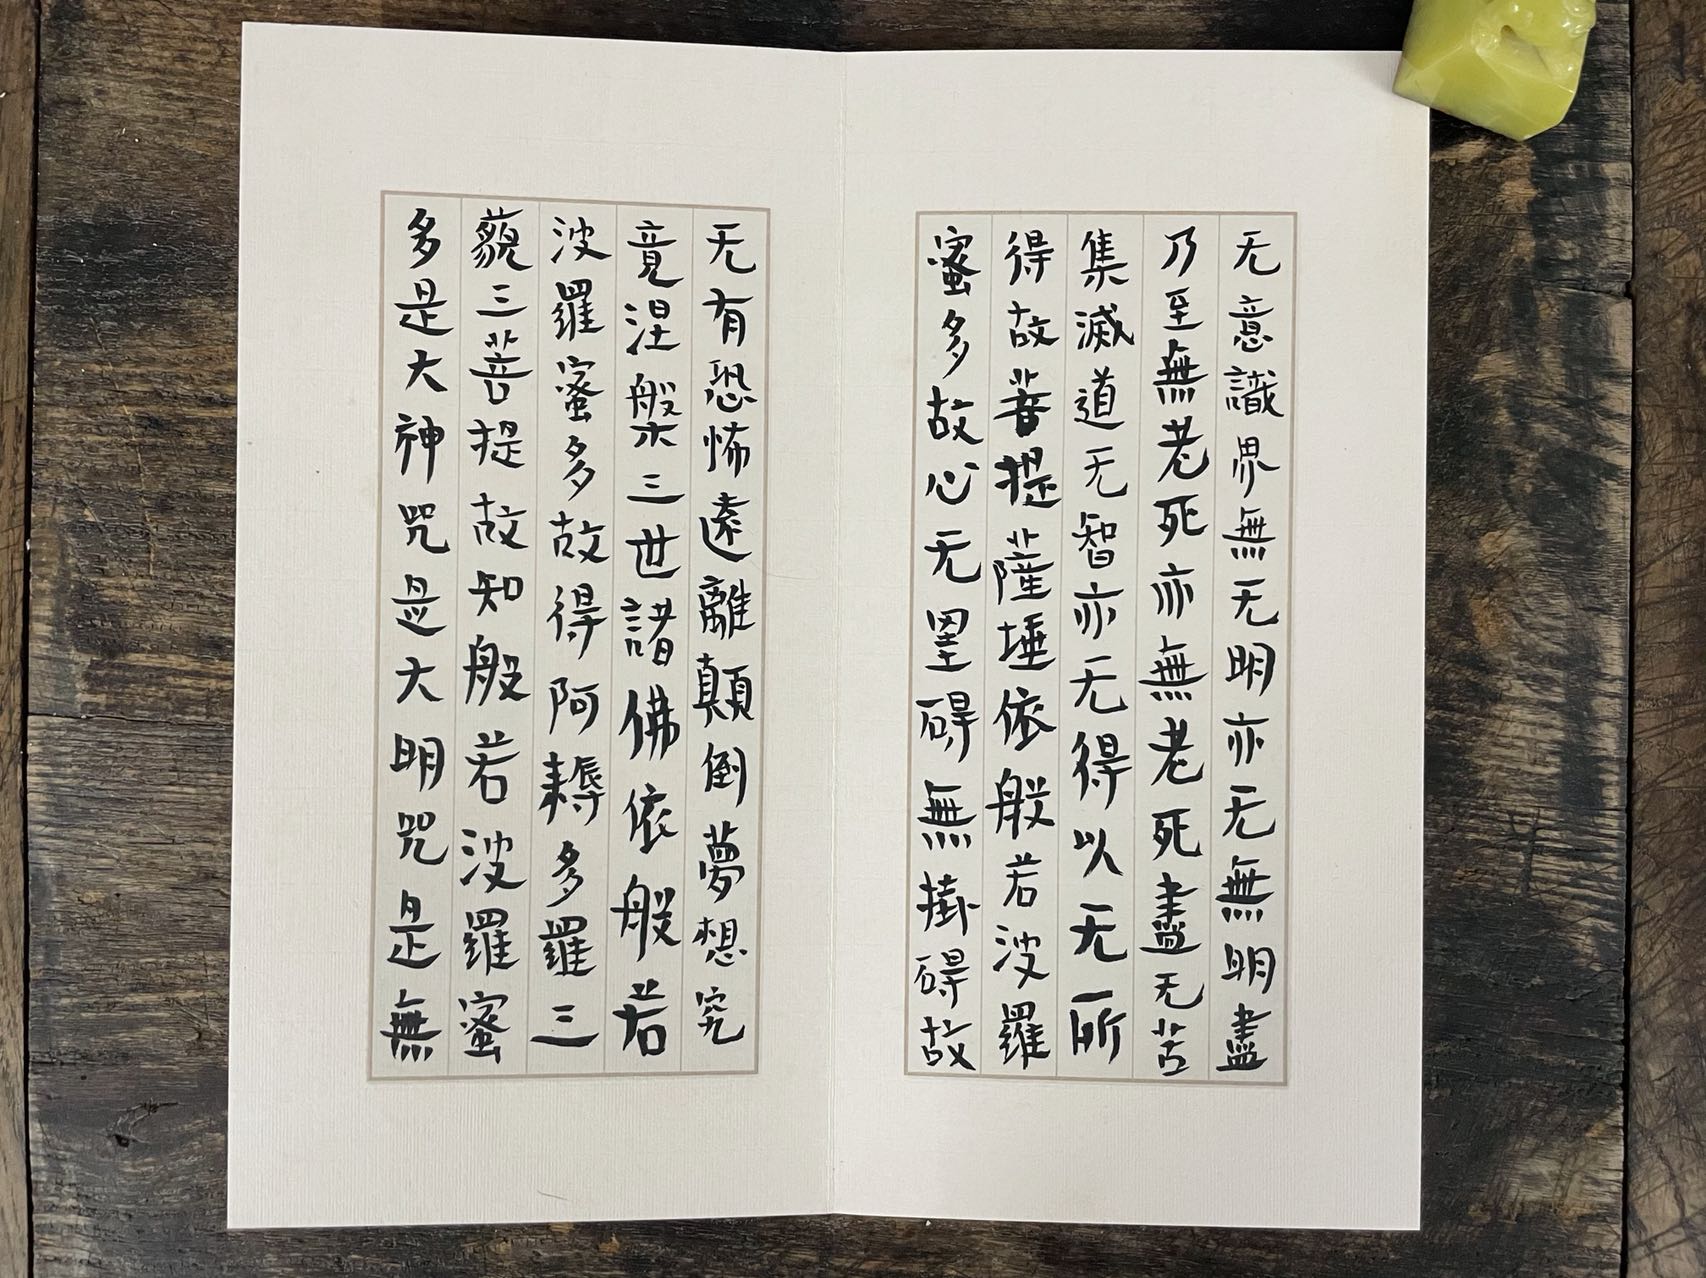 无意識界無无明亦无無明盡
乃至無老死亦無老死盡无苦
集滅道无智亦无得以无所
得故菩提薩埵依般若波羅
蜜多故心无罣碍無掛碍故
无有恐怖遠離顛倒夢想究
竟涅槃三世諸佛依般若
波羅蜜多故得阿耨多羅三
藐三菩提故知般若波羅蜜
多是大神咒是大明咒是無